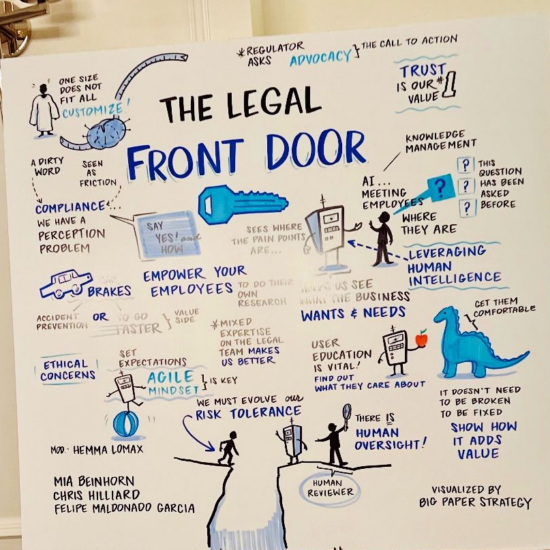 *REGULATOR
ASKS ADVOCACY} THE CALL TO ACTION
ONE SIZE
DOES NOT
FIT ALL
CUSTOMIZE!
TRUST
IS OUR #1
VALUE
THE LEGAL
FRONT DOOR
KNOWLEDGE
MANAGEMENT
A DIRTY
WORD
SEEN
AS
FRICTION
COMPLIANCE
WE HAVE A
PERCEPTION
PROBLEM
SAY
YES! and
HOW
SEES WHERE
THE PAIN POINTS
ARE...
AI...
MEETING
EMPLOYEES
WHERE
THEY ARE
?
? THIS
QUESTION
? HAS BEEN
ASKED
? BEFORE
LEVERAGING
HUMAN
INTELLIGENCE
BRAKES
ACCIDENT
PREVENTION
OR
TO GO
FASTER
} VALUE
SIDE
EMPOWER YOUR
EMPLOYEES TO DO THEIR
OWN
RESEARCH
US SEE
WHAT THE BUSINESS
WANTS & NEEDS
GET THEM
COMFORTABLE
*MIXED
EXPERTISE
ON THE LEGAL
TEAM MAKES
US BETTER
USER
EDUCATION
IS VITAL!
FIND OUT
WHAT THEY CARE ABOUT
ETHICAL
CONCERNS
SET
EXPECTATIONS
AGILE
MINDSET } IS KEY
IT DOESN'T NEED
TO BE BROKEN
TO BE FIXED
SHOW HOW
IT ADDS
VALUE
WE MUST EVOLVE our
RISK TOLERANCE
THERE IS
HUMAN
OVERSIGHT!
HUMAN
REVIEWER
MOD - HEMMA LOMAX
MIA BEINHORN
CHRIS HILLIARD
FELIPE MALDONADO GARCIA
VISUALIZED BY
BIG PAPER STRATEGY